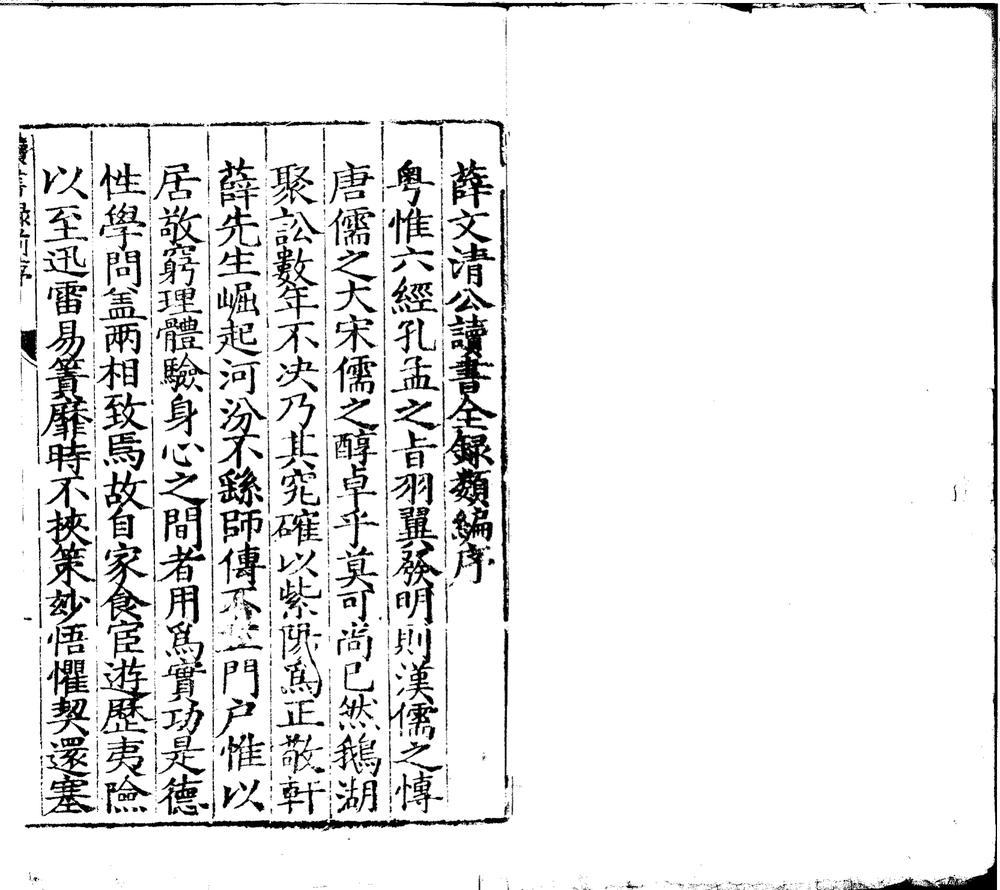 薛文清公讀書全録類編序
粤惟六經孔孟之旨羽翼發明則漢儒之慱
唐儒之大宋儒之醇卓乎莫可尚已然鵝湖
聚訟數年不决乃其究確以紫陽爲正敬軒
薛先生崛起河汾不繇師傳不立門户惟以
居敬窮理體驗身心之間者用爲實功是德
性學問盖兩相致焉故自家食宦遊歷夷險
以至迅雷易簀靡時不挾策妙悟懼契還塞
讀書録前序